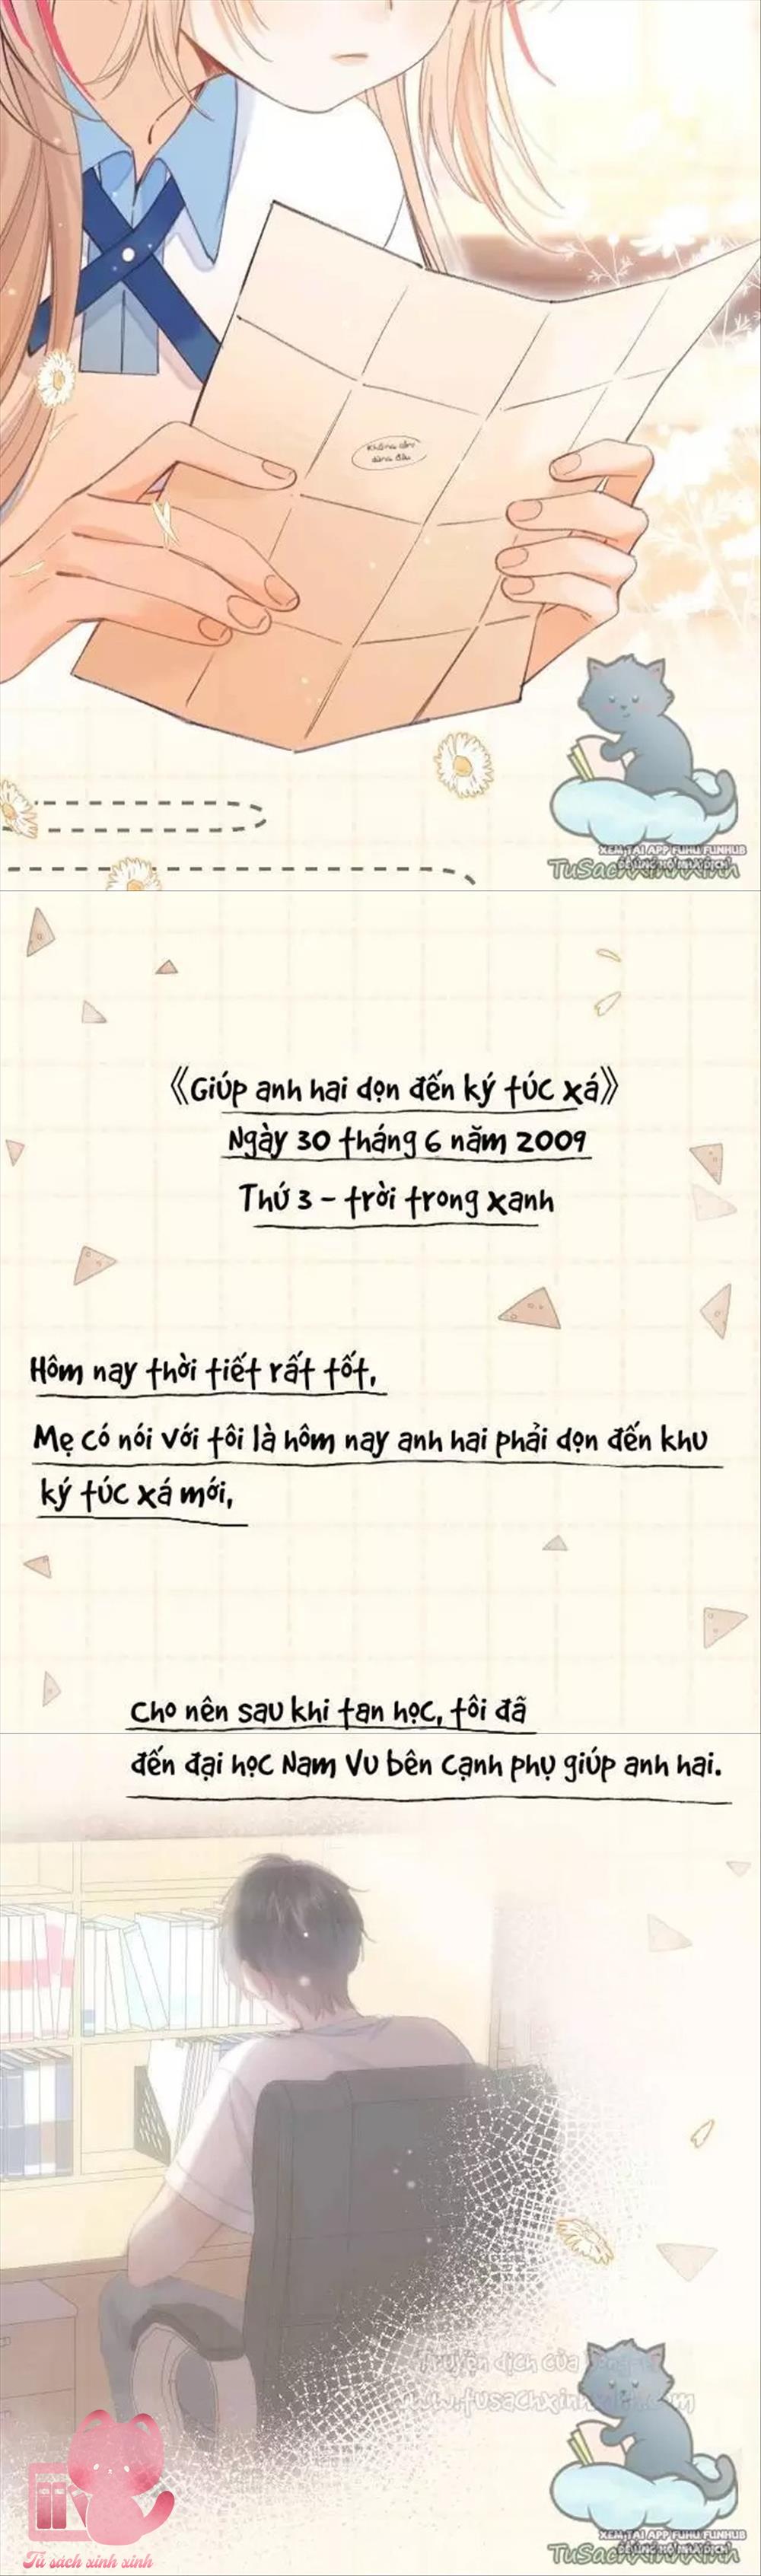 Không cần
dùng đâu
XEM TẠI APP FUHU FUNHUB
ĐỂ ỦNG HỘ MUA DỊCH
TuSachXinhXinh
《Giúp anh hai dọn đến ký túc xá》
Ngày 30 tháng 6 năm 2009
Thứ 3 - trời trong xanh
Hôm nay thời tiết rất tốt,
Mẹ có nói với tôi là hôm nay anh hai phải dọn đến khu
ký túc xá mới,
Cho nên sau khi tan học, tôi đã
đến đại học Nam Vu bên cạnh phụ giúp anh hai.
Truyện dịch của
www.tusachxinhxinh.com
XEM TẠI APP FUHU FUNHUB
ĐỂ ỦNG HỘ MUA DỊCH
TuSachXinhXinh
Tủ sách xinh xinh